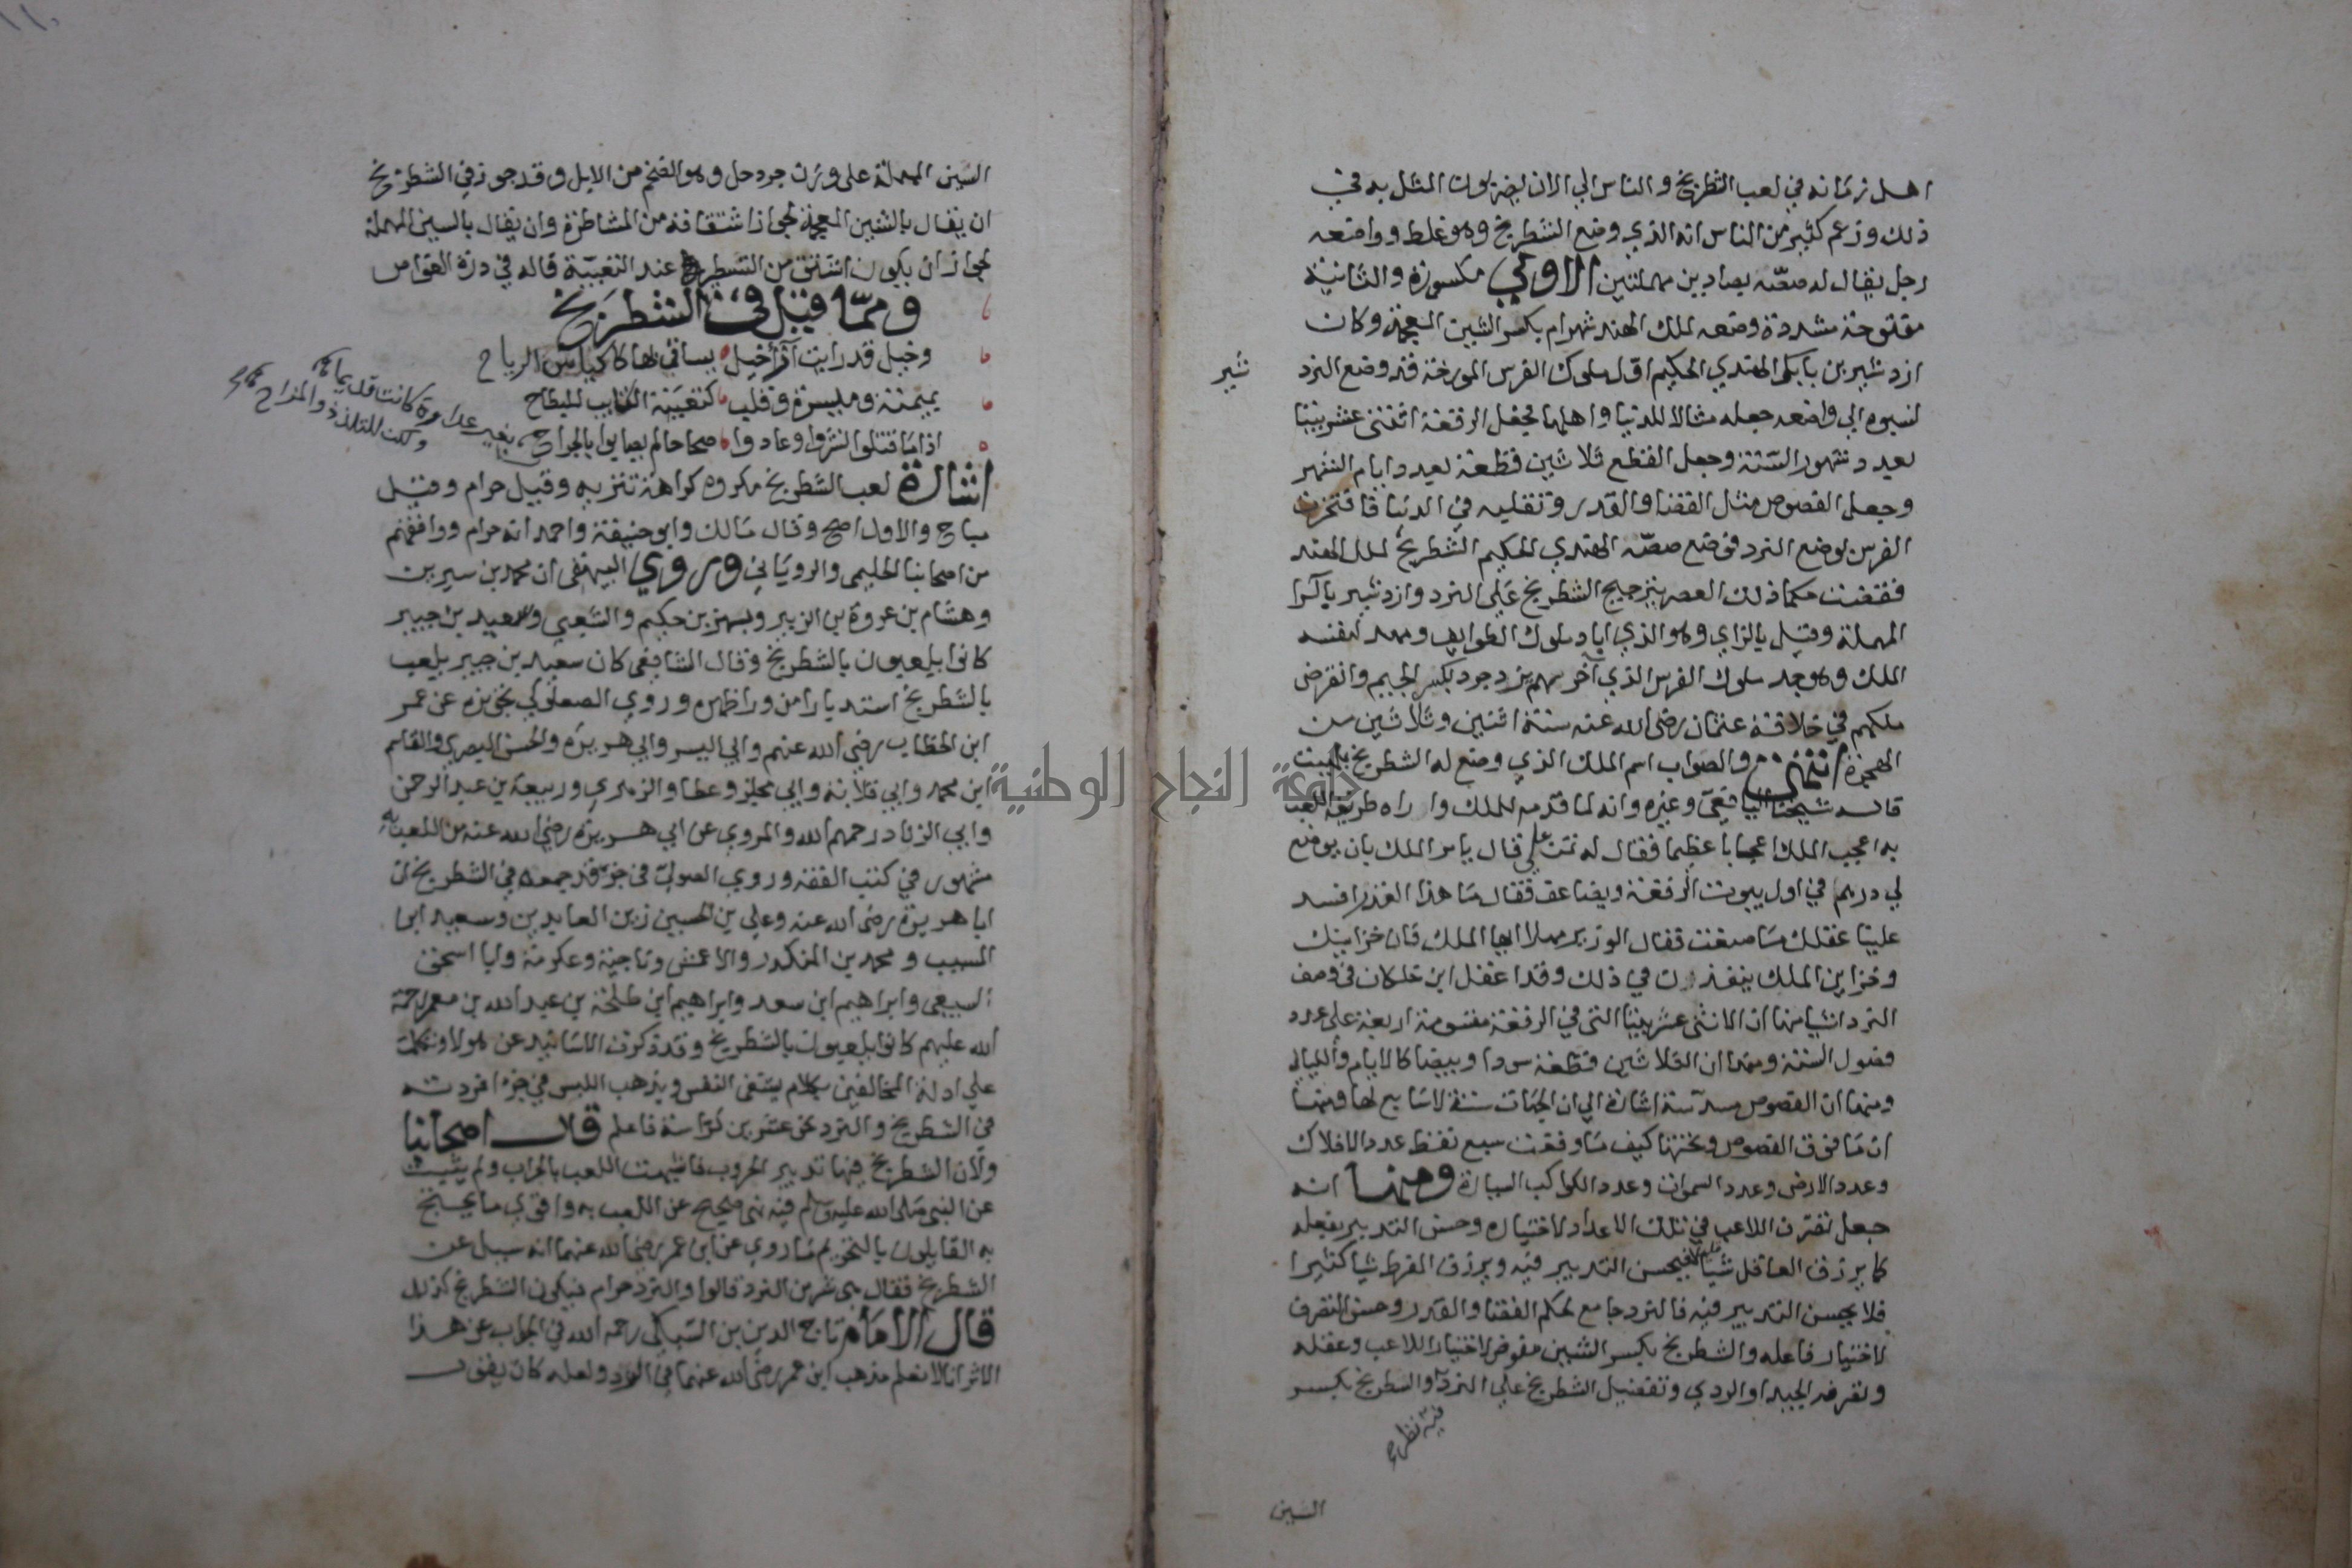 اهل زمانه في لعب الشطرنج والناس الي الان يضربون المثل به في
ذلك وزعم كثير من الناس انه الذي وضع الشطرنج وهو غلط وواضعه
رجل يقال له صصّه بصادين مهملتين الاولي مكسورة والثانية
مفتوحة مشددة وضعه لملك الهند شهرام بكسر الشين المعجمة وكان
ازدشير بن بابك الهندي الحكيم اوّل ملوك الفرس المورخة قد وضع النرد
شير
لنسبوه الي واضعه جعله مثالا للدنيا واهلها فجعل الرقعة اثنتي عشر بيتا
بعدد شهور السّنة وجعل القطع ثلاثين قطعة بعدد ايام الشهر
وجعل الفصوص مثل القضا والقدر وتقلبه في الدنيا فافتخرت
الفرس بوضع النرد فوضع صصّه الهندي الحكيم الشطرنج لملك الهند
فقضت حكما ذلك العصر بترجيح الشطرنج علي النرد وازدشير بالرا
المهملة وقيل بالزاي وهو الذي اباد ملوك الطوايف ومهد لنفسه
الملك وهو جد ملوك الفرس الذي آخرهم يزدجرد بكسر الجيم وانقرض
ملكهم في خلافة عثمان رضي الله عنه سنة اثنين وثلاثين من
الهجرة انتهى والصواب اسم الملك الذي وضع له الشطرنج بلهيت
قاله شيخنا اليافعيّ وغيره وانه لما قدمه للملك واراه طريقة اللعب
به اعجب الملك اعجابا عظيما فقال له تمن علي قال يامر الملك بان يوضع
لي درهم في اول بيوت الرقعة ويضاعف فقال ما هذا القدر افسد
علينا عقلك ما صنعت فقال الوزير مهلا ايها الملك فان خزاينك
وخزاين الملك ينفذن في ذلك وقد اغفل ابن خلكان في وصف
النرد اشيا منها ان الاثني عشر بيتا التي في الرقعة مقسومة اربعة علي عدد
فصول السنة ومنها ان الثلاثين قطعة سودا وبيضا كالايام والليالي
ومنها ان الفصوص مسدّسة اشارة الي ان الجهات ستة لاسابع لها ومنها
ان ما فوق الفصوص وتحتها كيف ما وقعت سبع نقط عدد الافلاك
وعدد الارض وعدد السموات وعدد الكواكب السيارة ومنها انه
جعل تصرف اللاعب في تلك الاعداد لاختياره وحسن التدبير بعقله
كما يرزق العاقل شيا قليلا فيحسن التدبير فيه ويرزق المفرط شيا كثيرا
فلا يحسن التدبير فيه فالنرد جامع لحكم القضا والقدر وحسن التصرف
لاختيار فاعله والشطرنج بكسر الشين مفوض لاختيار اللاعب وعقله
وتصرفه الجيد او الردي وتفضيل الشطرنج علي النرد والشطرنج بكسر
فيه نظر
السّين
السّين المهملة علي وزن جردحل وهو الضخم من الابل وقد جوز في الشطرنج
ان يقال بالشين المعجمة لجواز اشتقاقه من المشاطرة وان يقال بالسين المهملة
لجواز ان يكون اشتق من التسطير عند التعبية قاله في درة الغواص
وممّا قيل في الشطرنج
وخيل قد رايت آزاء خيل يساقي بها كاسات الرياح
بميمنة وميسرة وقلب كتعبية الكتايب للبطاح
اذا ما قتلوا نشروا وعادوا صحاحا لم يصابوا بالجراح
بغير عداوة كانت قديما
ولكن للتلذذ والمزاح
اشارة لعب الشطرنج مكروه كراهة تنزيه وقيل حرام وقيل
مباح والاول اصح وقال مالك وابو حنيفة واحمد انه حرام ووافقهم
من اصحابنا الحليمي والروياني وروي البيهقي ان محمد بن سيرين
وهشام بن عروة بن الزبير وبهز بن حكيم والشعبي وسعيد بن جبير
كانوا يلعبون بالشطرنج وقال الشافعي كان سعيد بن جبير يلعب
بالشطرنج استدبارا من ورا ظهره وروي الصعلوكي تجويزه عن عمر
ابن الخطاب رضي الله عنهم وابي اليسر وابي هريرة والحسن البصري والقاسم
ابن محمد وابي قلابة وابي مجلز وعطا والزهري وربيعة بن عبد الرحمن
وابي الزناد رحمهم الله والمروي عن ابي هريرة رضي الله عنه من اللعب به
مشهور في كتب الفقه وروي الصولي في جزء قد جمعه في الشطرنج ان
ابا هريرة رضي الله عنه وعلي بن الحسين زين العابدين وسعيد ابن
المسيب ومحمد بن المنكدر والاعمش وناجية وعكرمة وابا اسحق
السبيعي وابراهيم ابن سعد وابراهيم ابن طلحة بن عبد الله بن معمر رحمة
الله عليهم كانوا يلعبون بالشطرنج وقد ذكرت الاسانيد عن هولا وتكلمت
علي ادلة المخالفين بكلام يشفي النفس ويذهب اللبس في جزء افردته
في الشطرنج والنرد نحو عشرين كراسة فاعلم قال اصحابنا
ولان الشطرنج فيها تدبير الحروب فاشبهت اللعب بالحراب ولم يثبت
عن النبي صلي الله عليه وسلم فيه نهي صحيح عن اللعب به واقوي ما يحتج
به القايلون بالتحريم ما روي عن ابن عمر رضي الله عنهما انه سيل عن
الشطرنج فقال هي شر من النرد قالوا والنرد حرام فيكون الشطرنج كذلك
قال الامام تاج الدين بن السّبكي رحمه الله في الجواب عن هذا
الاثر انا لا نعلم مذهب ابن عمر رضي الله عنهما في النرد ولعله كان يقول
جامعة النجاح الوطنية